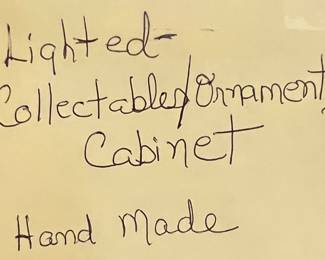 Lighted-
Collectables/Ornament
Cabinet
Hand Made